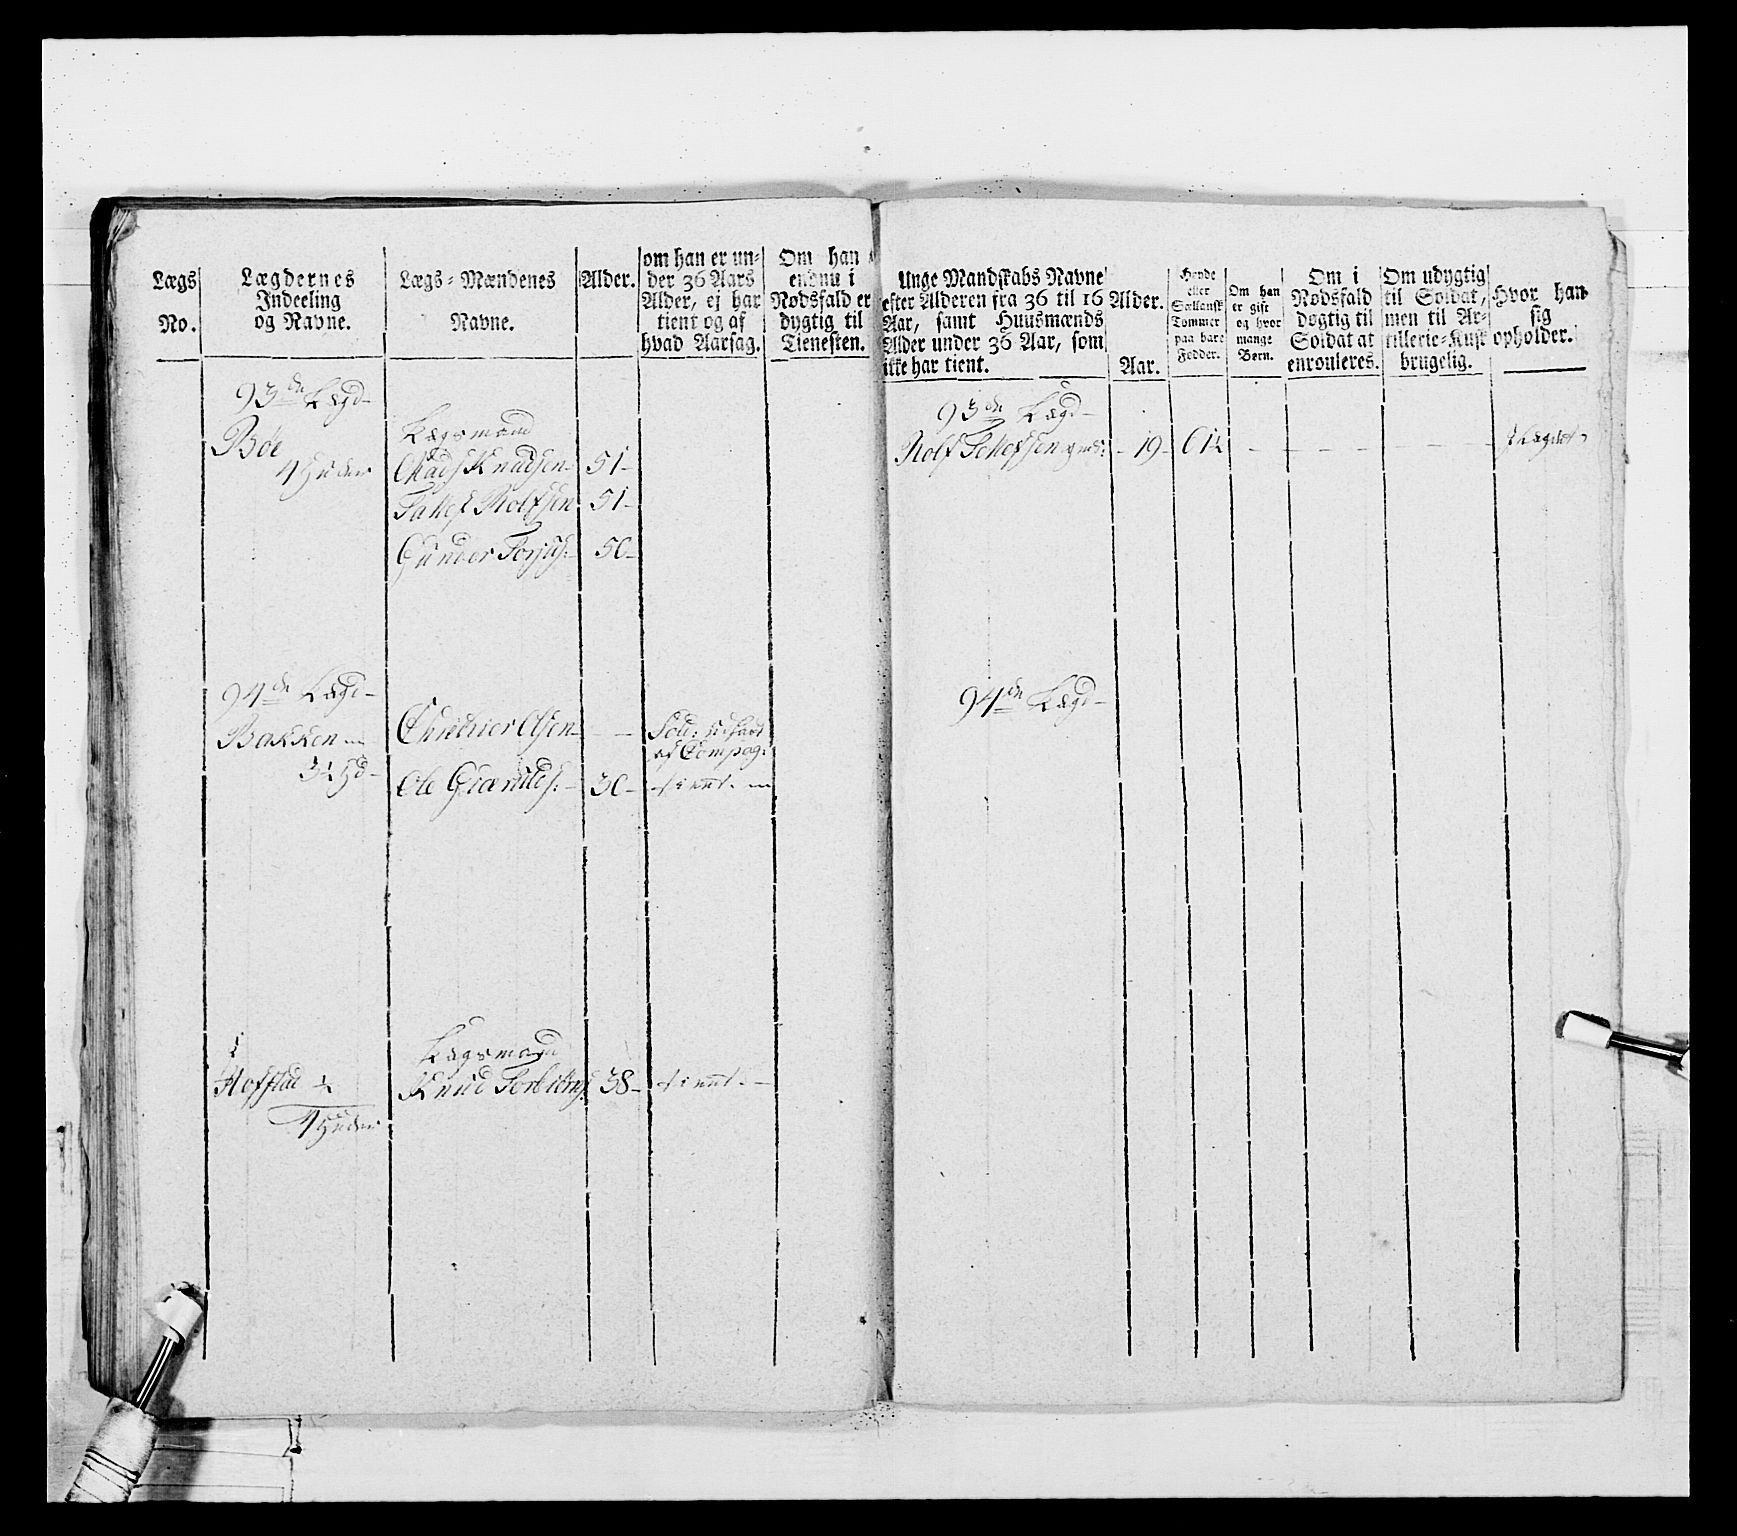 Lægs
No.
Lægdernes
Indeeling
og Navne.
Lægs-Mændenes
Navne.
Alder.
om han er un-
der 36 Aars
Alder, ej har
tient og af
hvad Aarsag.
Om han
endnu i
Nødsfald er
dygtig til
Tienesten.
93de Lægd
Bøe
4 Huder
Lægsmænd
Mads Knudsen 51
Tallef Rolfsen 51
Gunder Torjus: 50
94de Lægd
Bakken
3½ Hd
Christier Olsen
Sold:
af Compag:
Ole Grarulds: 30 tient
Hofstad ½
4 Huder
Lægsmand
Knud Torbiørns: 38 tient
Unge Mandskabs Navne
efter Alderen fra 36 til 16
Aar, samt Huusmænds
Alder under 36 Aar, som
ikke har tient.
Alder.
Aar.
Høyde
eller
Sællansk
Tommer
paa bare
Fødder.
Om han
er gift
og hvor
mange
Børn.
Om i
Nødsfald
døgtig til
Soldat at
enrouleres.
Om udygtig
til Soldat,
men til Ar-
tillerie-Kusk
brugelig.
Hvor han
sig
opholder.
93de Lægd
Rolf Tellefsen 19 61½ - - - - - i Lægdet
94de Lægd